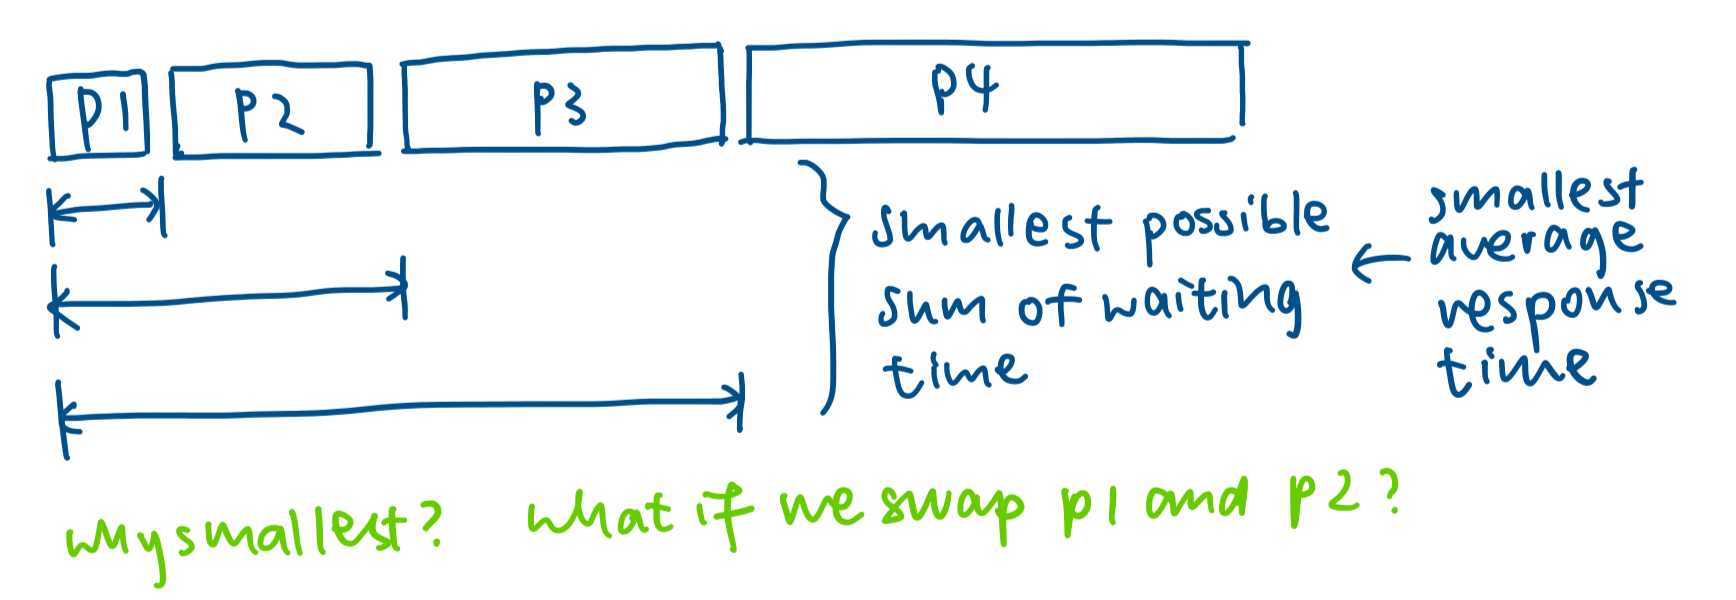 p1
p2
p3
p4
smallest possible
sum of waiting
time
smallest
average
response
time
why smallest? what if we swap p1 and p2?